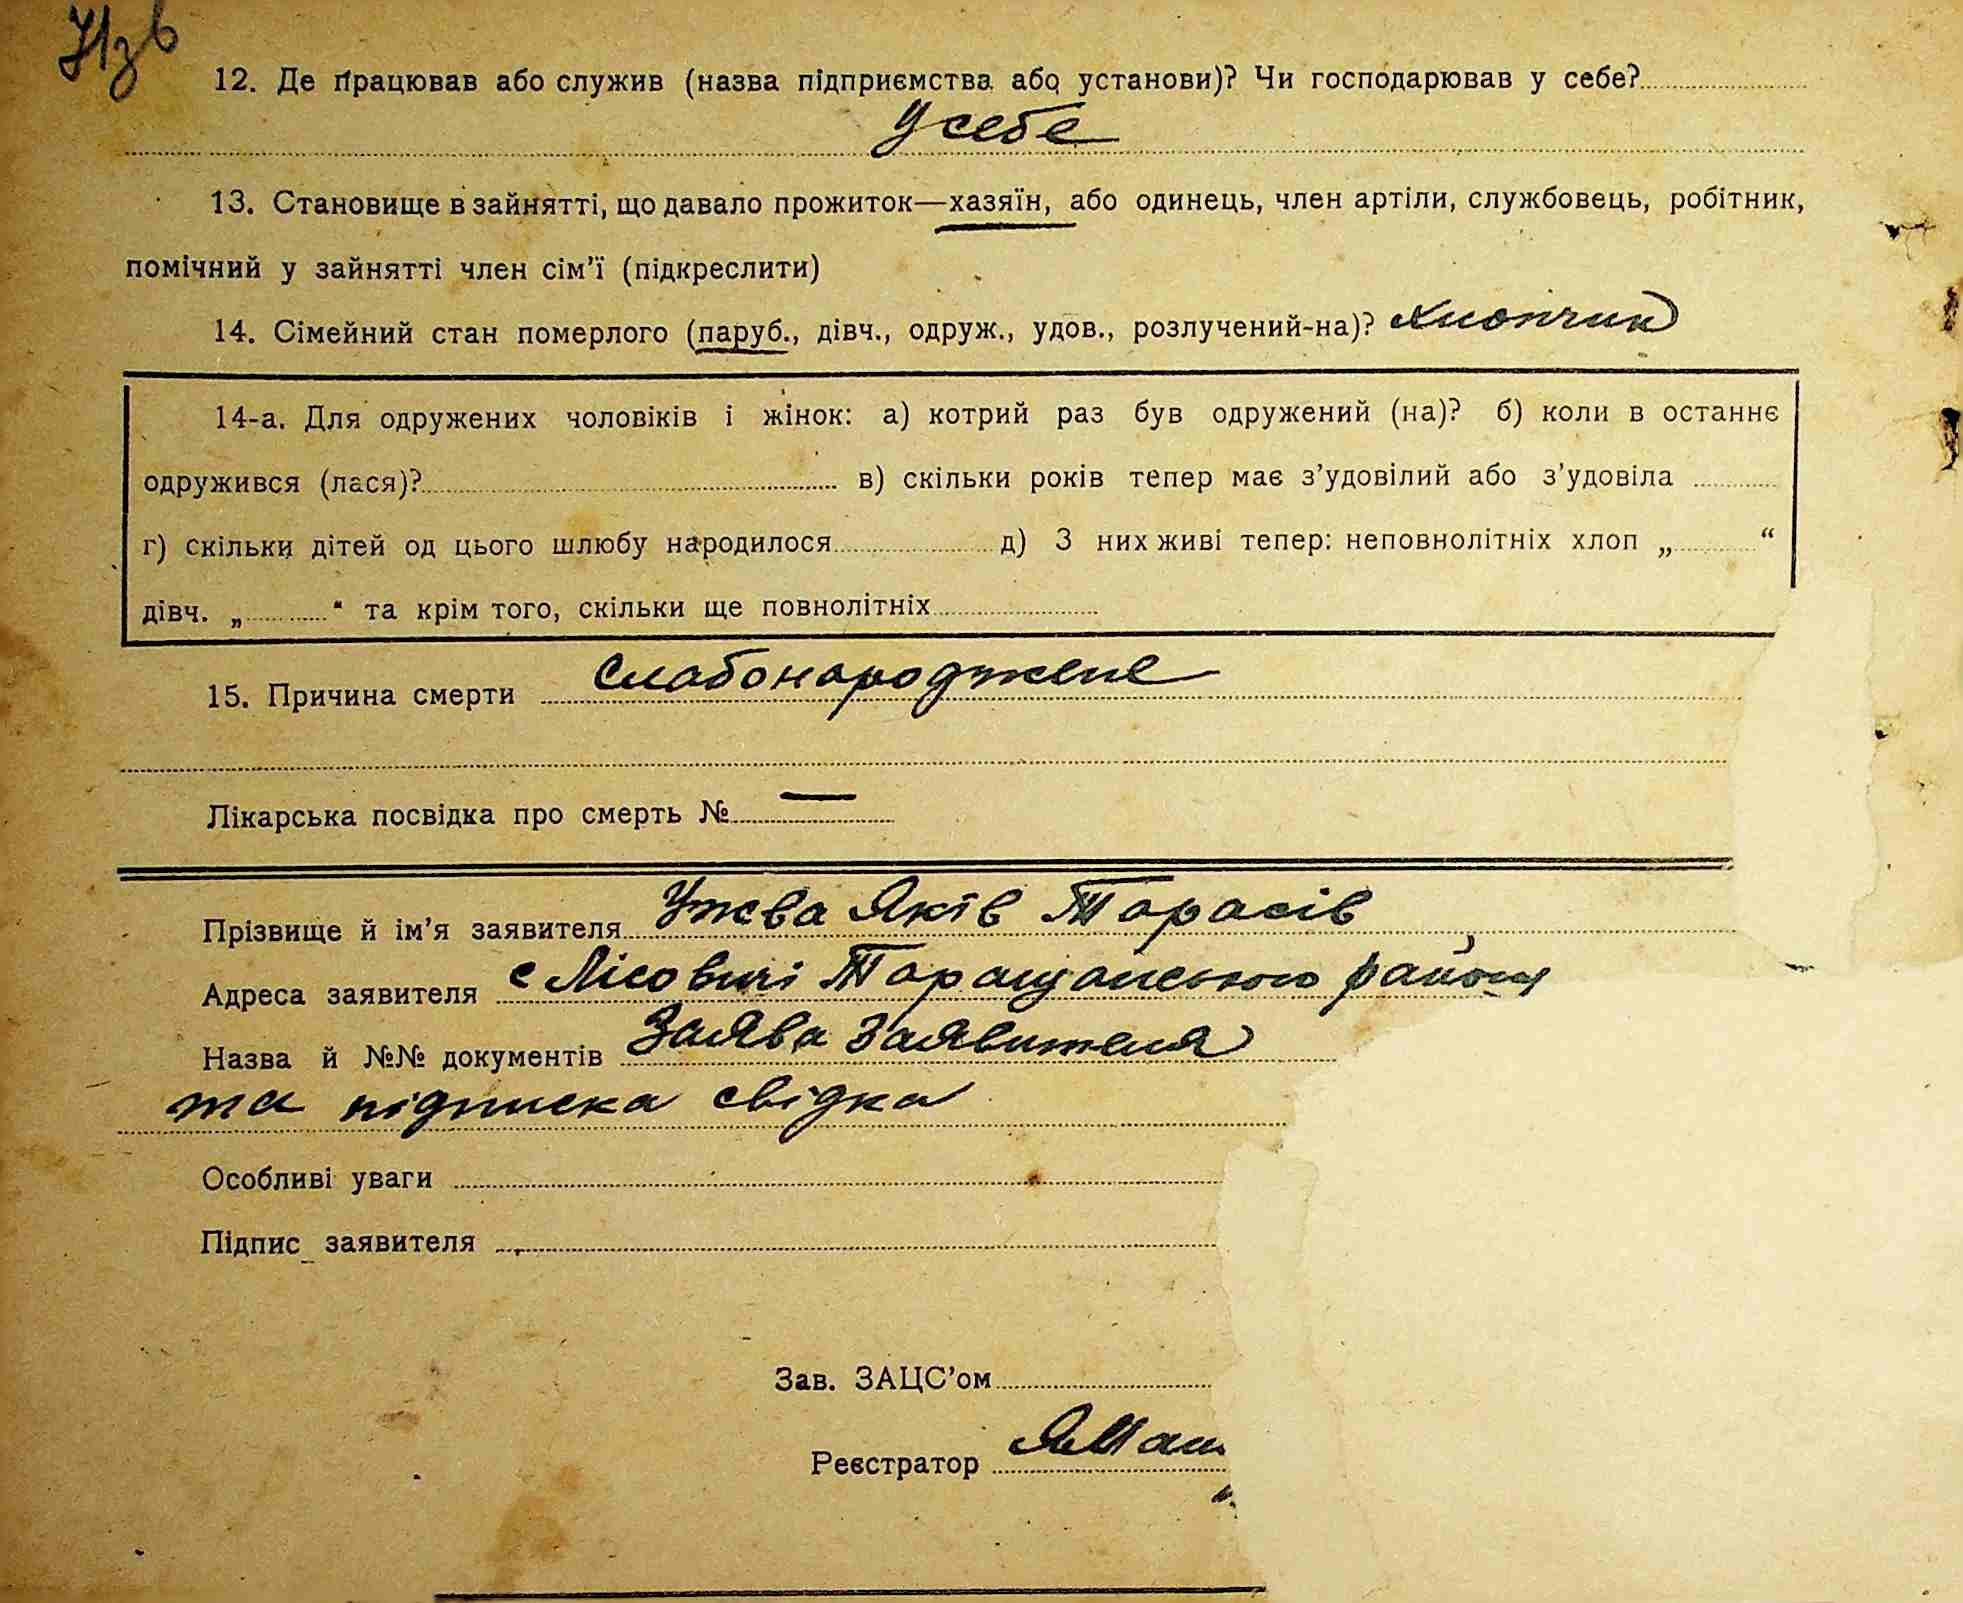 12. Де працював або служив (назва підприємства або установи)? Чи господарював у себе?
У себе
13. Становище в зайнятті, що давало прожиток—хазяїн, або одинець, член артіли, службовець, робітник,
помічний у зайнятті член сім'ї (підкреслити)
14. Сімейний стан померлого (паруб., дівч., одруж., удов., розлучений-на)? Хлопчик
14-а. Для одружених чоловіків і жінок: а) котрий раз був одружений (на)? б) коли в останнє
одружився (лася)? в) скільки років тепер має з'удовілий або з'удовіла
г) скільки дітей од цього шлюбу народилося д) З них живі тепер: неповнолітніх хлоп „ “
дівч. „ “ та крім того, скільки ще повнолітніх
15. Причина смерти Слабонароджене
Лікарська посвідка про смерть № —
Прізвище й ім'я заявителя Ужва Яків Тарасів
Адреса заявителя с Лісовичі Таращанського району
Назва й №№ документів Заява заявителя
та підписка свідка
Особливі уваги
Підпис заявителя
Зав. ЗАЦС'ом
Реєстратор